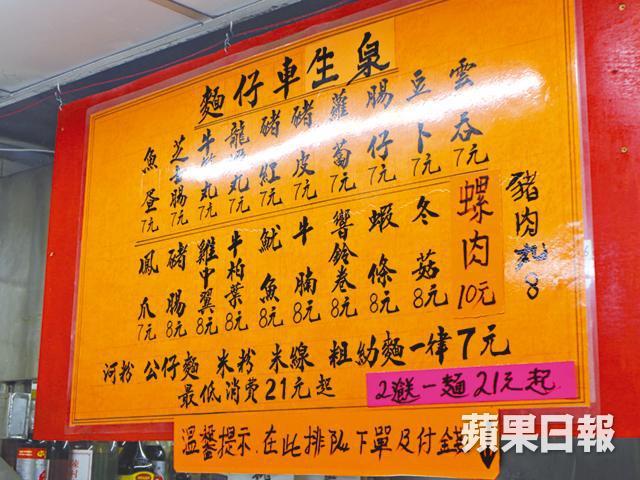 泉生車仔麵
雲吞7元
豆卜7元
腸仔7元
蘿蔔7元
豬皮7元
豬紅7元
龍蝦丸7元
牛筋丸7元
芝士腸7元
魚蛋7元
豬肉 8
螺肉10元
冬菇8元
蝦條8元
響鈴卷8元
牛腩8元
魷魚8元
牛柏葉8元
雞中翼8元
豬腸8元
鳳爪7元
河粉 公仔麵 米粉 米線 粗幼麵一律7元
最低消費21元起
2送一麵21元起
溫馨提示.在此排隊下單及付錢
蘋果日報